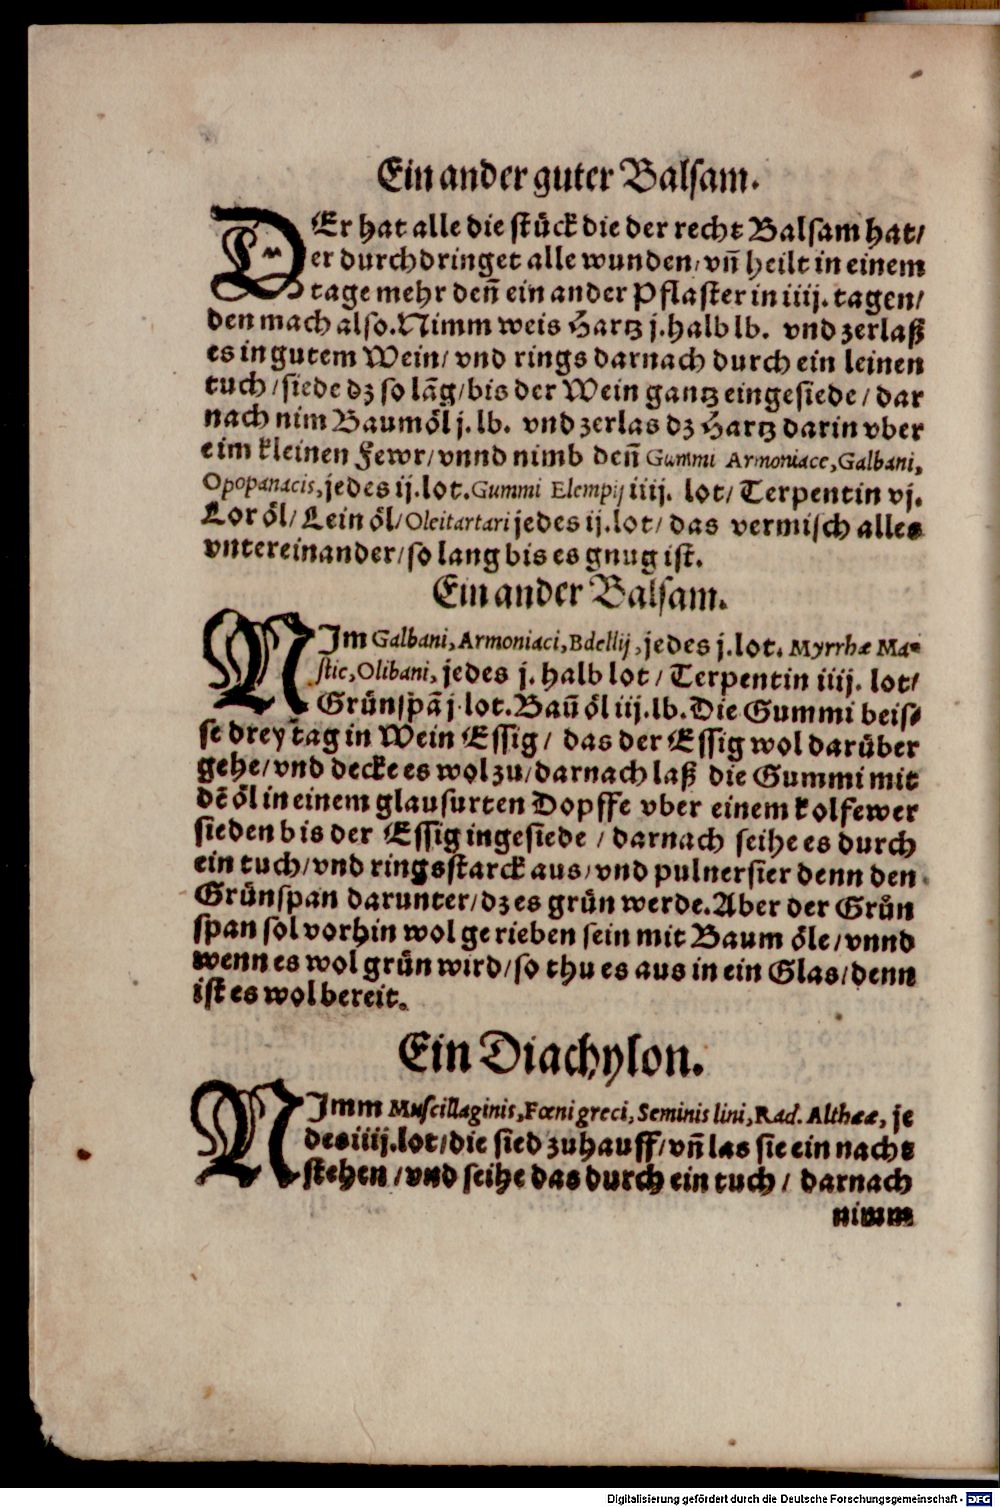 Ein ander guter Balsam.
DEr hat alle die stück die der recht Balsam hat/
er durchdringet alle wunden/vñ heilt in einem
tage mehr deñ ein ander Pflaster in iiij. tagen/
den mach also. Nimm weis Hartz j. halb lb. vnd zerlaß
es in gutem Wein/ vnd rings darnach durch ein leinen
tuch/siede dz so lãg/bis der Wein gantz eingesiede/ dar
nach nim Baumöl j. lb. vnd zerlas dz Hartz darin vber
eim kleinen Fewr/vnnd nimb deñ Gummi Armoniace, Galbani,
Opopanacis, jedes ij. lot. Gummi Elempij iiij. lot/ Terpentin vj.
Lor öl/ Lein öl/ Oleitartari jedes ij. lot/ das vermisch alles
vntereinander/so lang bis es gnug ist.
Ein ander Balsam.
NIm Galbani, Armoniaci, Bdellij, jedes j. lot. Myrrhæ Ma-
stic, Olibani, jedes j. halb lot/ Terpentin iiij. lot/
Grünspã j. lot. Baũ öl iij. lb. Die Gummi beis-
se drey tag in Wein Essig/ das der Essig wol darüber
gehe/vnd decke es wol zu/darnach laß die Gummi mit
dẽ öl in einem glausurten Dopffe vber einem kolfewer
sieden bis der Essig ingesiede / darnach seihe es durch
ein tuch/vnd rings starck aus/vnd pulnersier denn den
Grünspan darunter/dz es grün werde. Aber der Grün
span sol vorhin wol gerieben sein mit Baum öle/vnnd
wenn es wol grün wird/so thu es aus in ein Glas/denn
ist es wol bereit.
Ein Diachylon.
NImm Muscillaginis, Fœnigreci, Seminis lini, Rad. Altheæ, je
des iiij. lot/die sied zuhauff/vñ las sie ein nacht
stehen/vnd seihe das durch ein tuch/ darnach
nimm
Digitalisierung gefördert durch die Deutsche Forschungsgemeinschaft - DFG